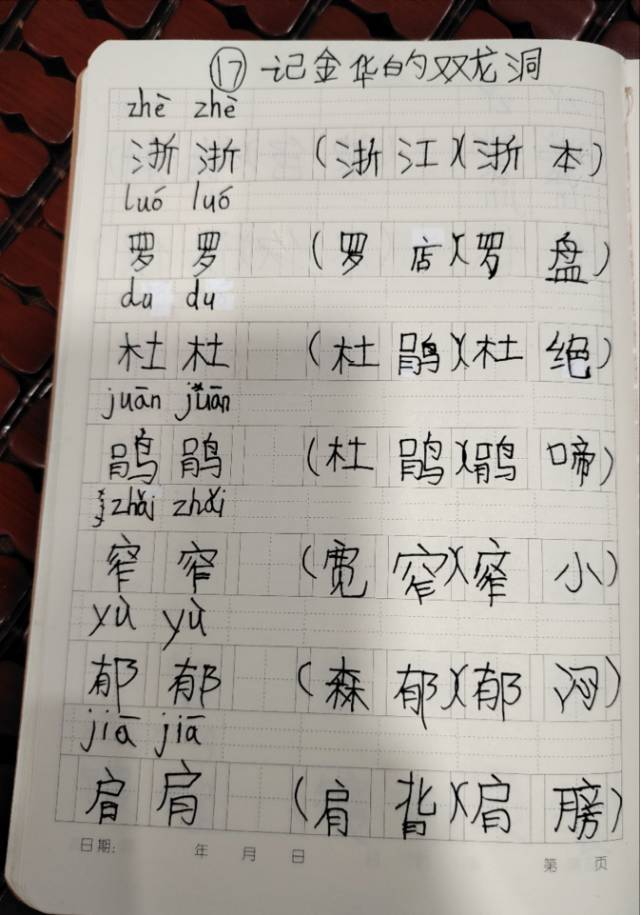 ⑰记金华的双龙洞
zhè zhè
浙 浙 (浙江)(浙本)
luó luó
罗 罗 (罗店)(罗盘)
du du
杜 杜 (杜鹃)(杜绝)
juān juān
鹃 鹃 (杜鹃)(鹃啼)
zhǎi zhǎi
窄 窄 (宽窄)(窄小)
yù yù
郁 郁 (森郁)(郁闷)
jiā jiā
肩 肩 (肩背)(肩膀)
日期: 年 月 日 第 页